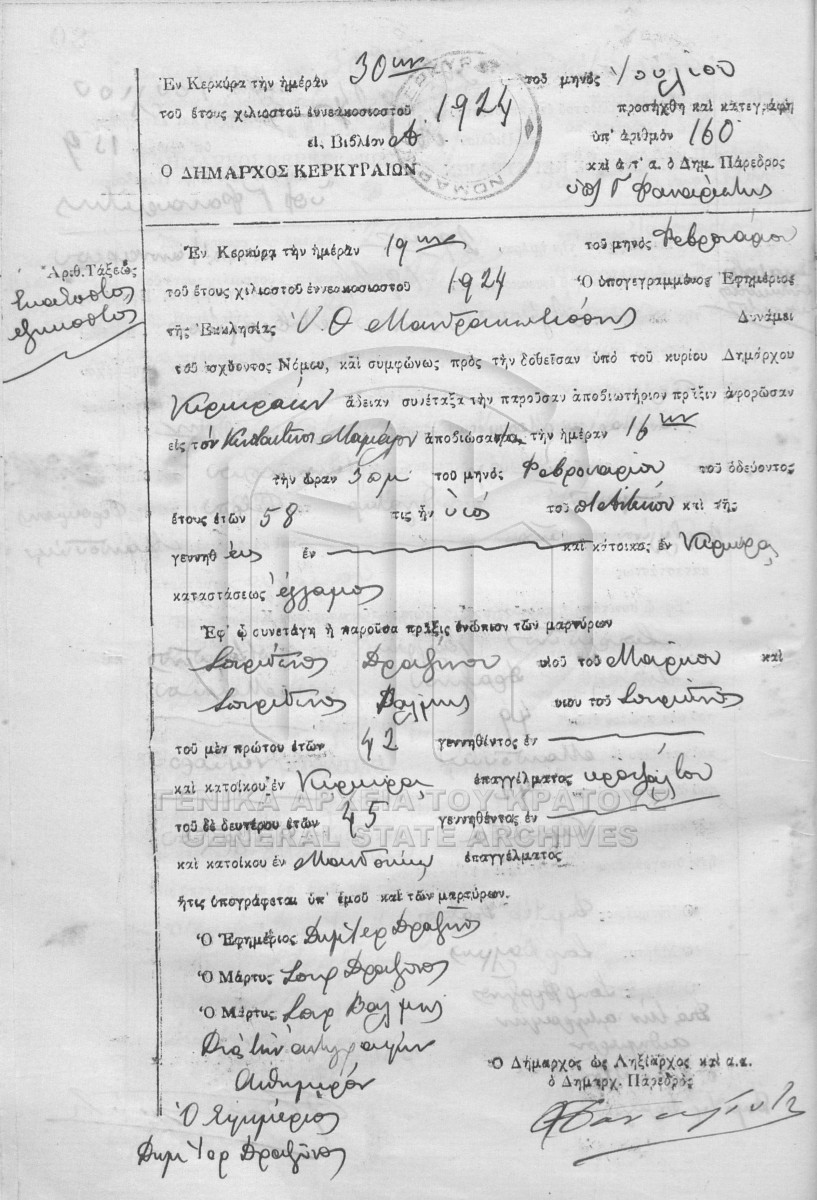 Ἐν Κερκύρᾳ τὴν ἡμέραν 30ην τοῦ μηνὸς Ἰουλίου
τοῦ ἔτους χιλιοστοῦ ἐννεακοσιοστοῦ 1924 προσήχθη καὶ κατεγράφη
εἰς Βιβλίον Α ὑπ' ἀριθμὸν 160
Ο ΔΗΜΑΡΧΟΣ ΚΕΡΚΥΡΑΙΩΝ καὶ ἀ.τ.α. ὁ Δημ. Πάρεδρος
ὑπ Γ Φαναριώτης
ΝΟΜΑΡΧ ΚΕΡΚΥΡ
Ἐν Κερκύρᾳ τὴν ἡμέραν 19ην τοῦ μηνὸς Φεβρουαρίου
Ἀριθ. Τάξεως
Ἑκατοστὸς
ἑξηκοστὸς
τοῦ ἔτους χιλιοστοῦ ἐννεακοσιοστοῦ 1924 Ὁ ὑπογεγραμμένος Ἐφημέριος
τῆς Ἐκκλησίας Υ. Θ Μανδρακιωτίσσης Δυνάμει
τοῦ ἰσχύοντος Νόμου, καὶ συμφώνως πρὸς τὴν δοθεῖσαν ὑπὸ τοῦ κυρίου Δημάρχου
Κερκυραίων ἄδειαν συνέταξα τὴν παροῦσαν ἀποβιωτήριον πρᾶξιν ἀφορῶσαν
εἰς τὸν Κωνσταντῖνον ἀποβιώσαντα τὴν ἡμέραν 16ην
τὴν ὥραν 3 π.μ τοῦ μηνὸς Φεβρουαρίου τοῦ ὁδεύοντος
ἔτους ἐτῶν 58 τις ἦν ὑιός τοῦ καὶ τῆς
γεννηθεὶς ἐν καὶ κάτοικος ἐν Κέρκυρᾳ
καταστάσεως ἔγγαμος
Ἐφ' ᾧ συνετάγη ἡ παροῦσα πρᾶξις ἐνώπιον τῶν μαρτύρων
Σπυρίδωνος Δραζίνου υἱοῦ τοῦ Μάρκου καὶ
Σπυρίδωνος Βαλμῆς υἱοῦ τοῦ Σπυρίδωνος
τοῦ μὲν πρώτου ἐτῶν 42 γεννηθέντος ἐν
καὶ κατοίκου ἐν Κέρκυρᾳ ἐπαγγέλματος
ΓΕΝΙΚΑ ΑΡΧΕΙΑ ΤΟΥ ΚΡΑΤΟΥΣ
τοῦ δὲ δευτέρου ἐτῶν 45 γεννηθέντος ἐν
GENERAL STATE ARCHIVES
καὶ κατοίκου ἐν Μανδούκι ἐπαγγέλματος
ἥτις ὑπογράφεται ὑπ' ἐμοῦ καὶ τῶν μαρτύρων.
Ὁ Ἐφημέριος Δημήτερ Δραζῖνος
Ὁ Μάρτυς Σπυρ Δραζῖνος
Ὁ Μάρτυς Σπυρ Βαλμῆς
Διὰ τὴν ἀντιγραφήν
Αὐθημερόν
Ὁ Ἐφημέριος
Δημήτερ Δραζῖνος
Ὁ Δήμαρχος ὡς Ληξίαρχος καὶ α.α.
ὁ Δημαρχ. Πάρεδρος